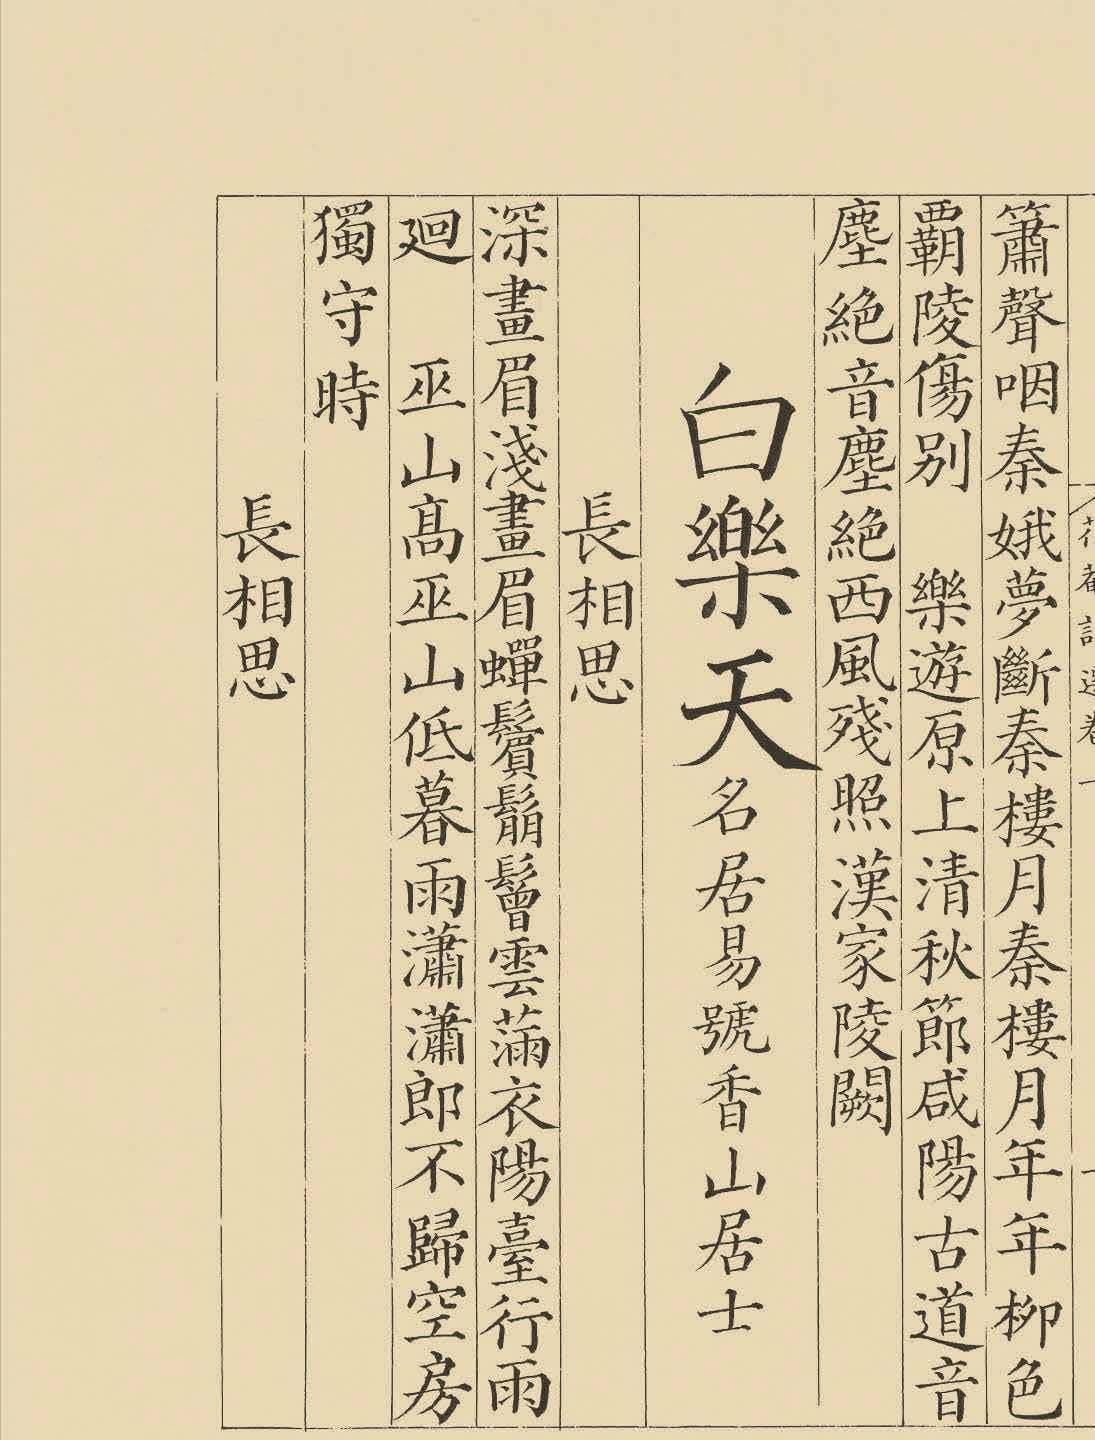 花菴詞選卷一
一
簫聲咽秦娥夢斷秦樓月秦樓月年年柳色
覇陵傷别　樂遊原上清秋節咸陽古道音
塵絶音塵絶西風殘照漢家陵闕
白樂天名居易號香山居士
長相思
深畫眉淺畫眉蟬鬢鬅鬙雲滿衣陽臺行雨
廻　巫山髙巫山低暮雨瀟瀟郎不歸空房
獨守時
長相思